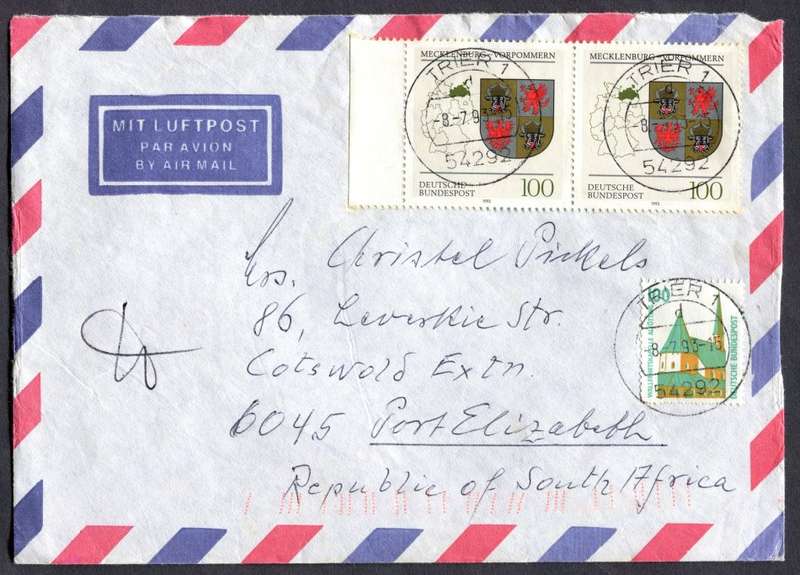 MECKLENBURG-VORPOMMERN
MECKLENBURG-VORPOMMERN
TRIER 1
TRIER 1
-8-7.93-15
-8-
54292
54292
DEUTSCHE
BUNDESPOST
100
1993
DEUTSCHE
BUNDESPOST
100
1993
MIT LUFTPOST
PAR AVION
BY AIR MAIL
Mrs. Christel Pickels
86, Leverkie Str.
Cotswold Extn.
6045 Port Elizabeth
Republic of South Africa
TRIER 1
-8-7.93-15
54292
WALLFAHRTSKAPELLE ALTÖTTING
DEUTSCHE BUNDESPOST